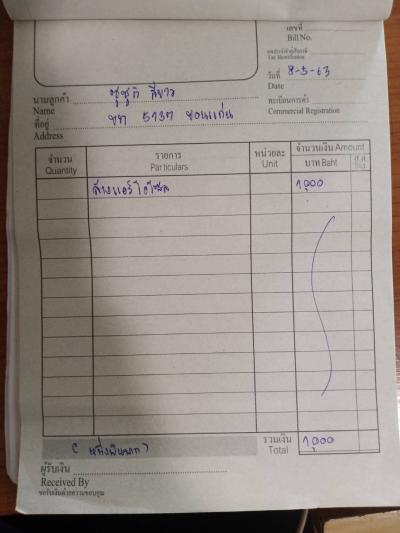 เลขที่
Bill No.
เลขประจำตัวผู้เสียภาษี
Tax Identification
วันที่ 8-5-63
Date
นามลูกค้า ซูซูกิ สีขาว
Name
ทะเบียนการค้า
Commercial Registration
ที่อยู่ ขท 5737 ขอนแก่น
Address
จำนวน รายการ หน่วยละ จำนวนเงิน Amount
Quantity Particulars Unit บาท Baht ส.ต.
ล้างแอร์ 1,000
( หนึ่งพันบาท ) รวมเงิน 1,000
Total
ผู้รับเงิน
Received By
ขอรับเงินด้วยความขอบคุณ